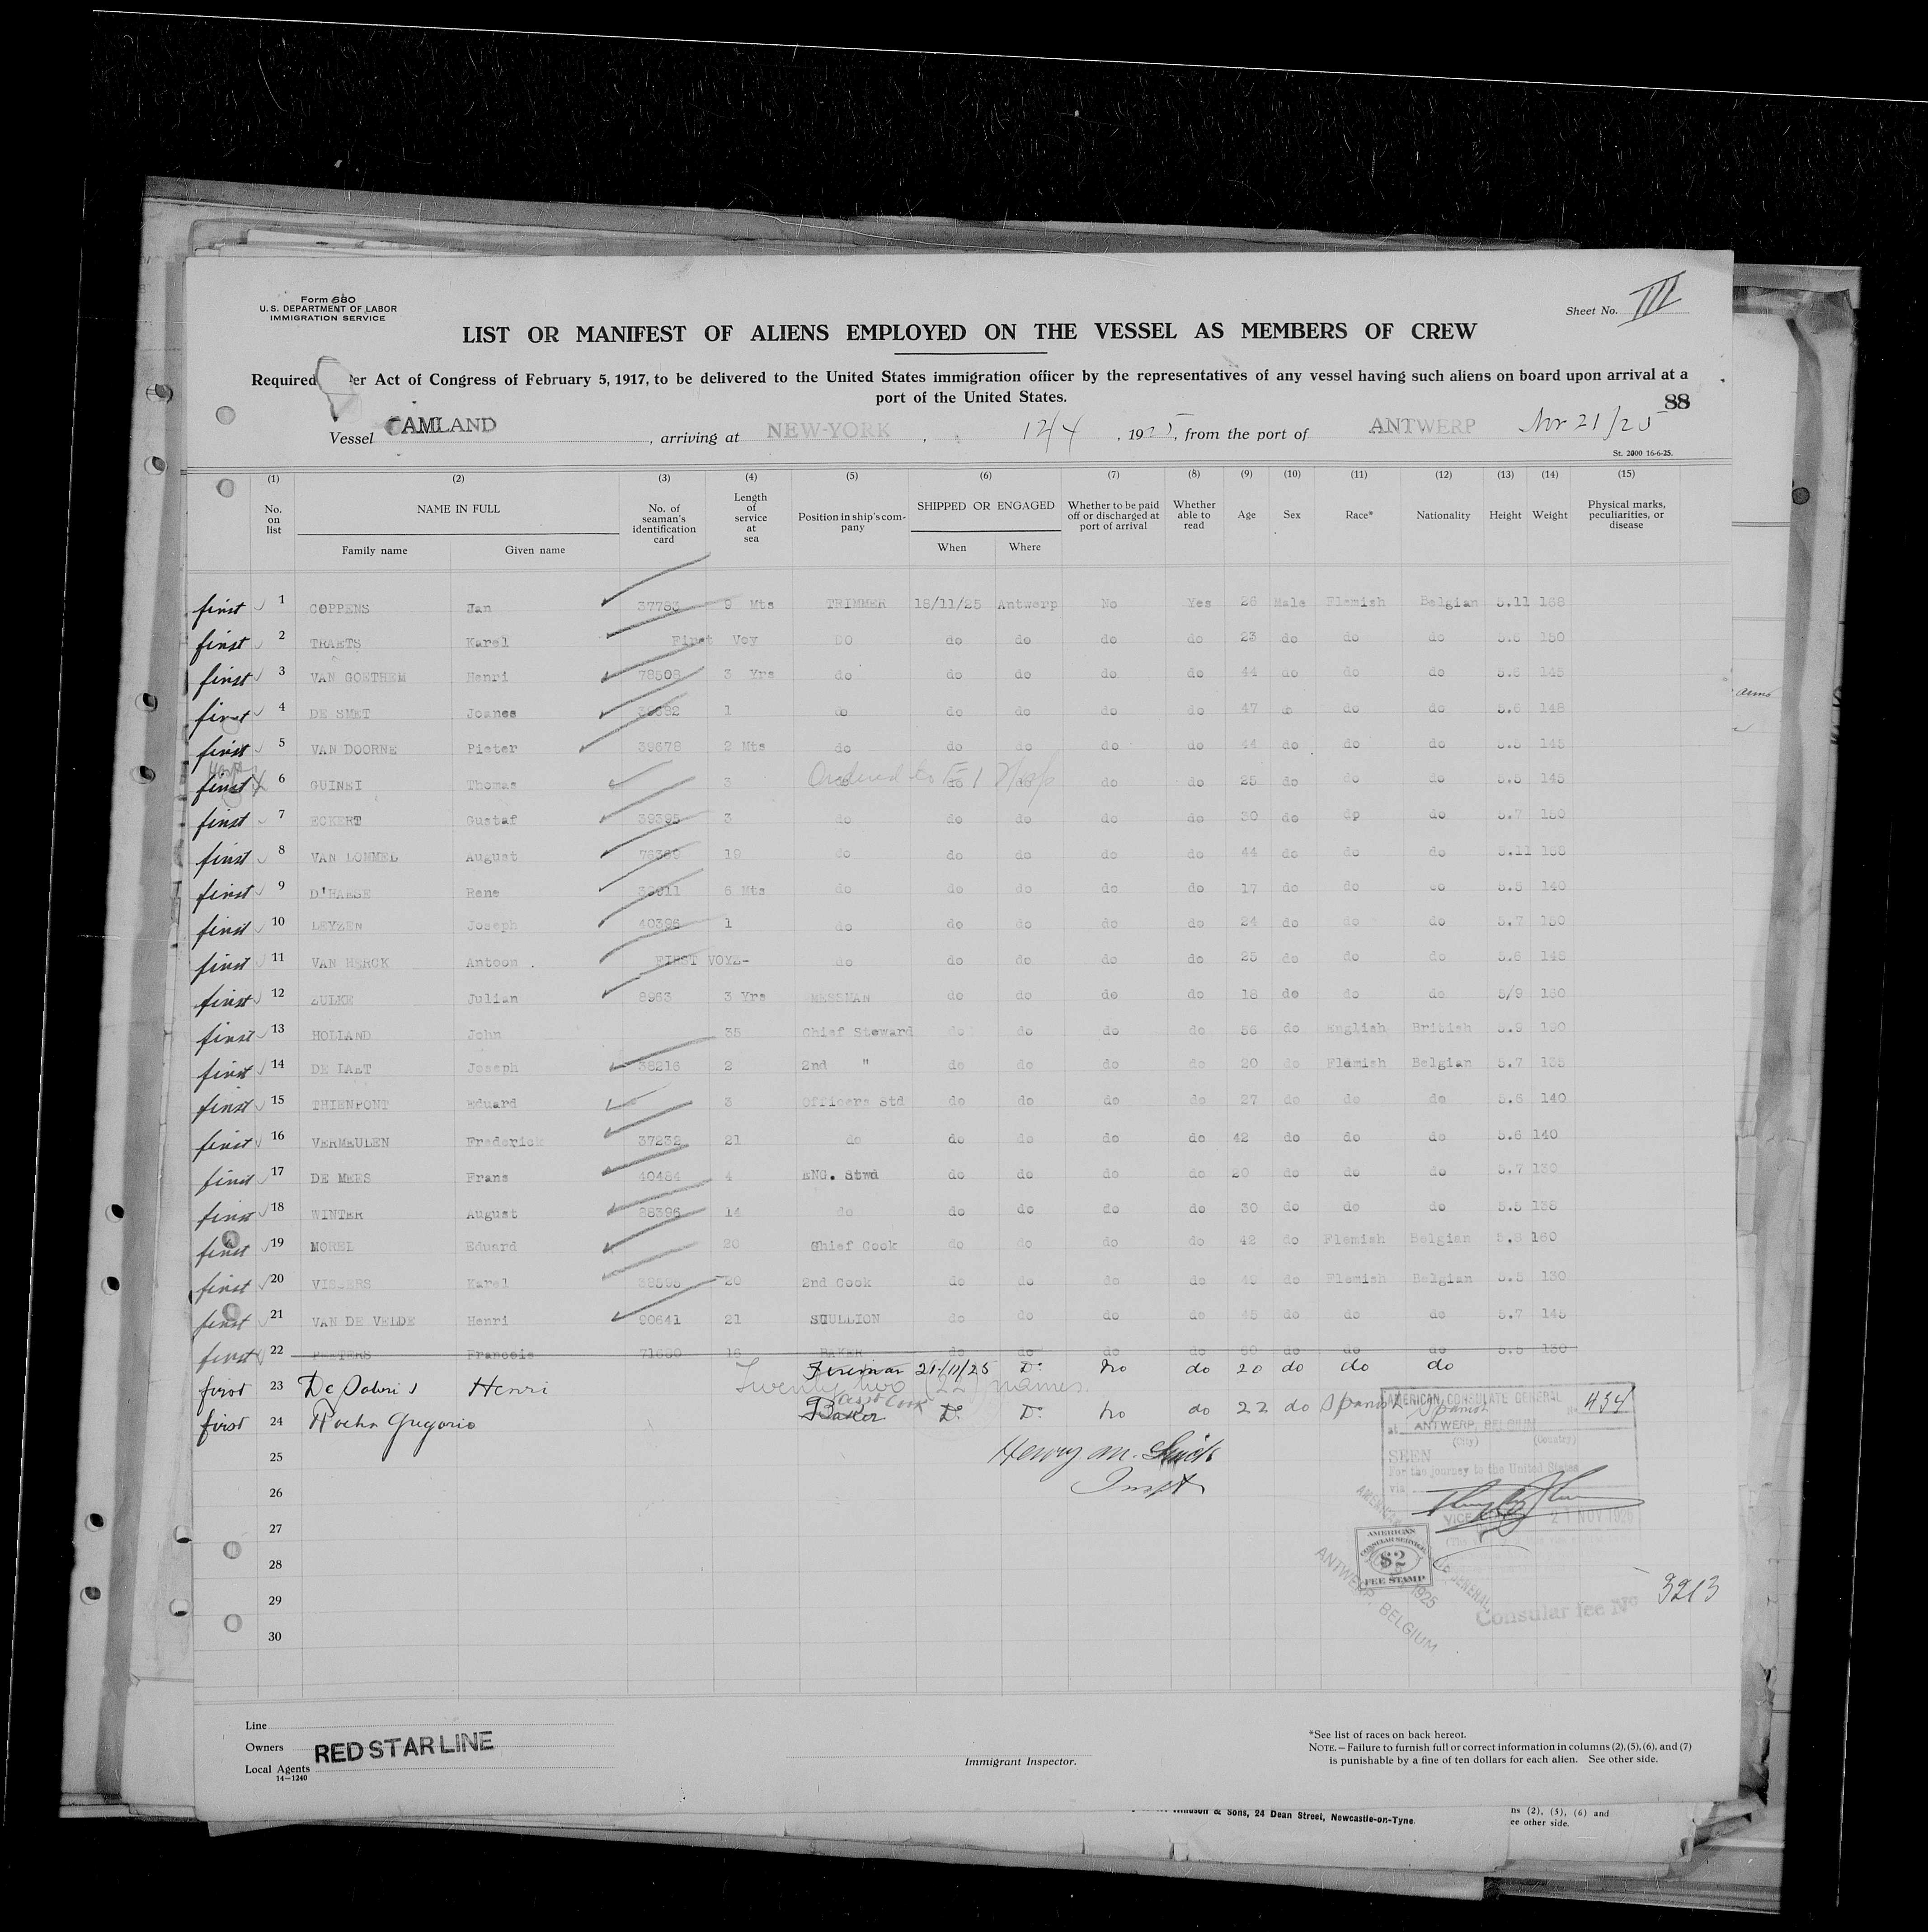 Form 680
U. S. DEPARTMENT OF LABOR
IMMIGRATION SERVICE
Sheet No. III
LIST OR MANIFEST OF ALIENS EMPLOYED ON THE VESSEL AS MEMBERS OF CREW
Required er Act of Congress of February 5, 1917, to be delivered to the United States immigration officer by the representatives of any vessel having such aliens on board upon arrival at a
port of the United States.
88
Vessel AMLAND , arriving at NEW-YORK , 12/4 , 1925, from the port of ANTWERP Nov 21/25
St. 2000 16-6-25.
(1) (2) (3) (4) (5) (6) (7) (8) (9) (10) (11) (12) (13) (14) (15)
No. on list NAME IN FULL Family name Given name No. of seaman's identification card Length of service at sea Position in ship's company SHIPPED OR ENGAGED When Where Whether to be paid off or discharged at port of arrival Whether able to read Age Sex Race* Nationality Height Weight Physical marks, peculiarities, or disease
first 1 COPPENS Jan 37783 9 Mts TRIMMER 18/11/25 Antwerp No Yes 26 Male Flemish Belgian 5.11 168
first 2 TRAETS Karel First Voy DO do do do do 23 do do do 5.8 150
first 3 VAN GOETHEM Henri 78508 3 Yrs do do do do do 44 do do do 5.6 145
first 4 DE SMET Joanes 1 do do do do do 47 do do do 5.6 148
first 5 VAN DOORNE Pieter 39678 2 Mts do do do do do 44 do do do 5.5 145
first 6 GUINEI Thomas 3 do do do do do 25 do do do 5.5 145
first 7 ECKERT Gustaf 39395 3 do do do do do 30 do do do 5.7 150
first 8 VAN LOMMEL August 19 do do do do do 44 do do do 5.11
first 9 D'HAESE Rene 6 Mts do do do do do 17 do do do 5.5 140
first 10 LEYZEN Joseph 40396 1 do do do do do 24 do do do 5.7 150
first 11 VAN HERCK Antoon . FIRST VOYE- do do do do do 25 do do do 5.6 148
first 12 ZULKE Julian 8963 3 Yrs MESSMAN do do do do 18 do do do 5/9 160
first 13 HOLLAND John 35 Chief Steward do do do do 56 do English British 5.9 190
first 14 DE LAET Joseph 38216 2 2nd " do do do do 20 do Flemish Belgian 5.7 135
first 15 THIENPONT Eduard 3 Officers Std do do do do 27 do do do 5.6 140
first 16 VERMEULEN Frederick 37232 21 do do do do do 42 do do do 5.6 140
first 17 DE MEES Frans 40484 4 ENG. Stwd do do do do 20 do do do 5.7 130
first 18 WINTER August 88396 14 do do do do do 30 do do do 5.5 138
first 19 MOREL Eduard 20 Chief Cook do do do do 42 do Flemish Belgian 5.8 160
first 20 VISSERS Karel 38595 20 2nd Cook do do do do do Flemish Belgian 5.5 130
first 21 VAN DE VELDE Henri 90641 21 SCULLION do do do do 45 do do do 5.7 145
first 22 PEETERS Francois 71680 16 BAKER do do do do 50 do do do 5.5 130
first 23 Henri Fireman 21/11/25 Do No do 20 do do do
Twenty two (22) names.
first 24 Rocha Gregorio Baker Asst Cook Do Do No do 22 do Spanish Spanish
25
26
27
28
29
30
Henry M.
Inspt
AMERICAN CONSULATE GENERAL
No. 434
at ANTWERP, BELGIUM
(City) (Country)
SEEN
For the journey to the United States
via
VICE
21 NOV 1925
AMERICAN
CONSULAR SERVICE
$2
FEE STAMP
ANTWERP, BELGIUM
Consular fee No 3213
Line
Owners RED STAR LINE
Local Agents
14—1240
Immigrant Inspector.
*See list of races on back hereof.
NOTE.—Failure to furnish full or correct information in columns (2), (5), (6), and (7)
is punishable by a fine of ten dollars for each alien. See other side.
& Sons, 24 Dean Street, Newcastle-on-Tyne.
ns (2), (5), (6) and
ee other side.